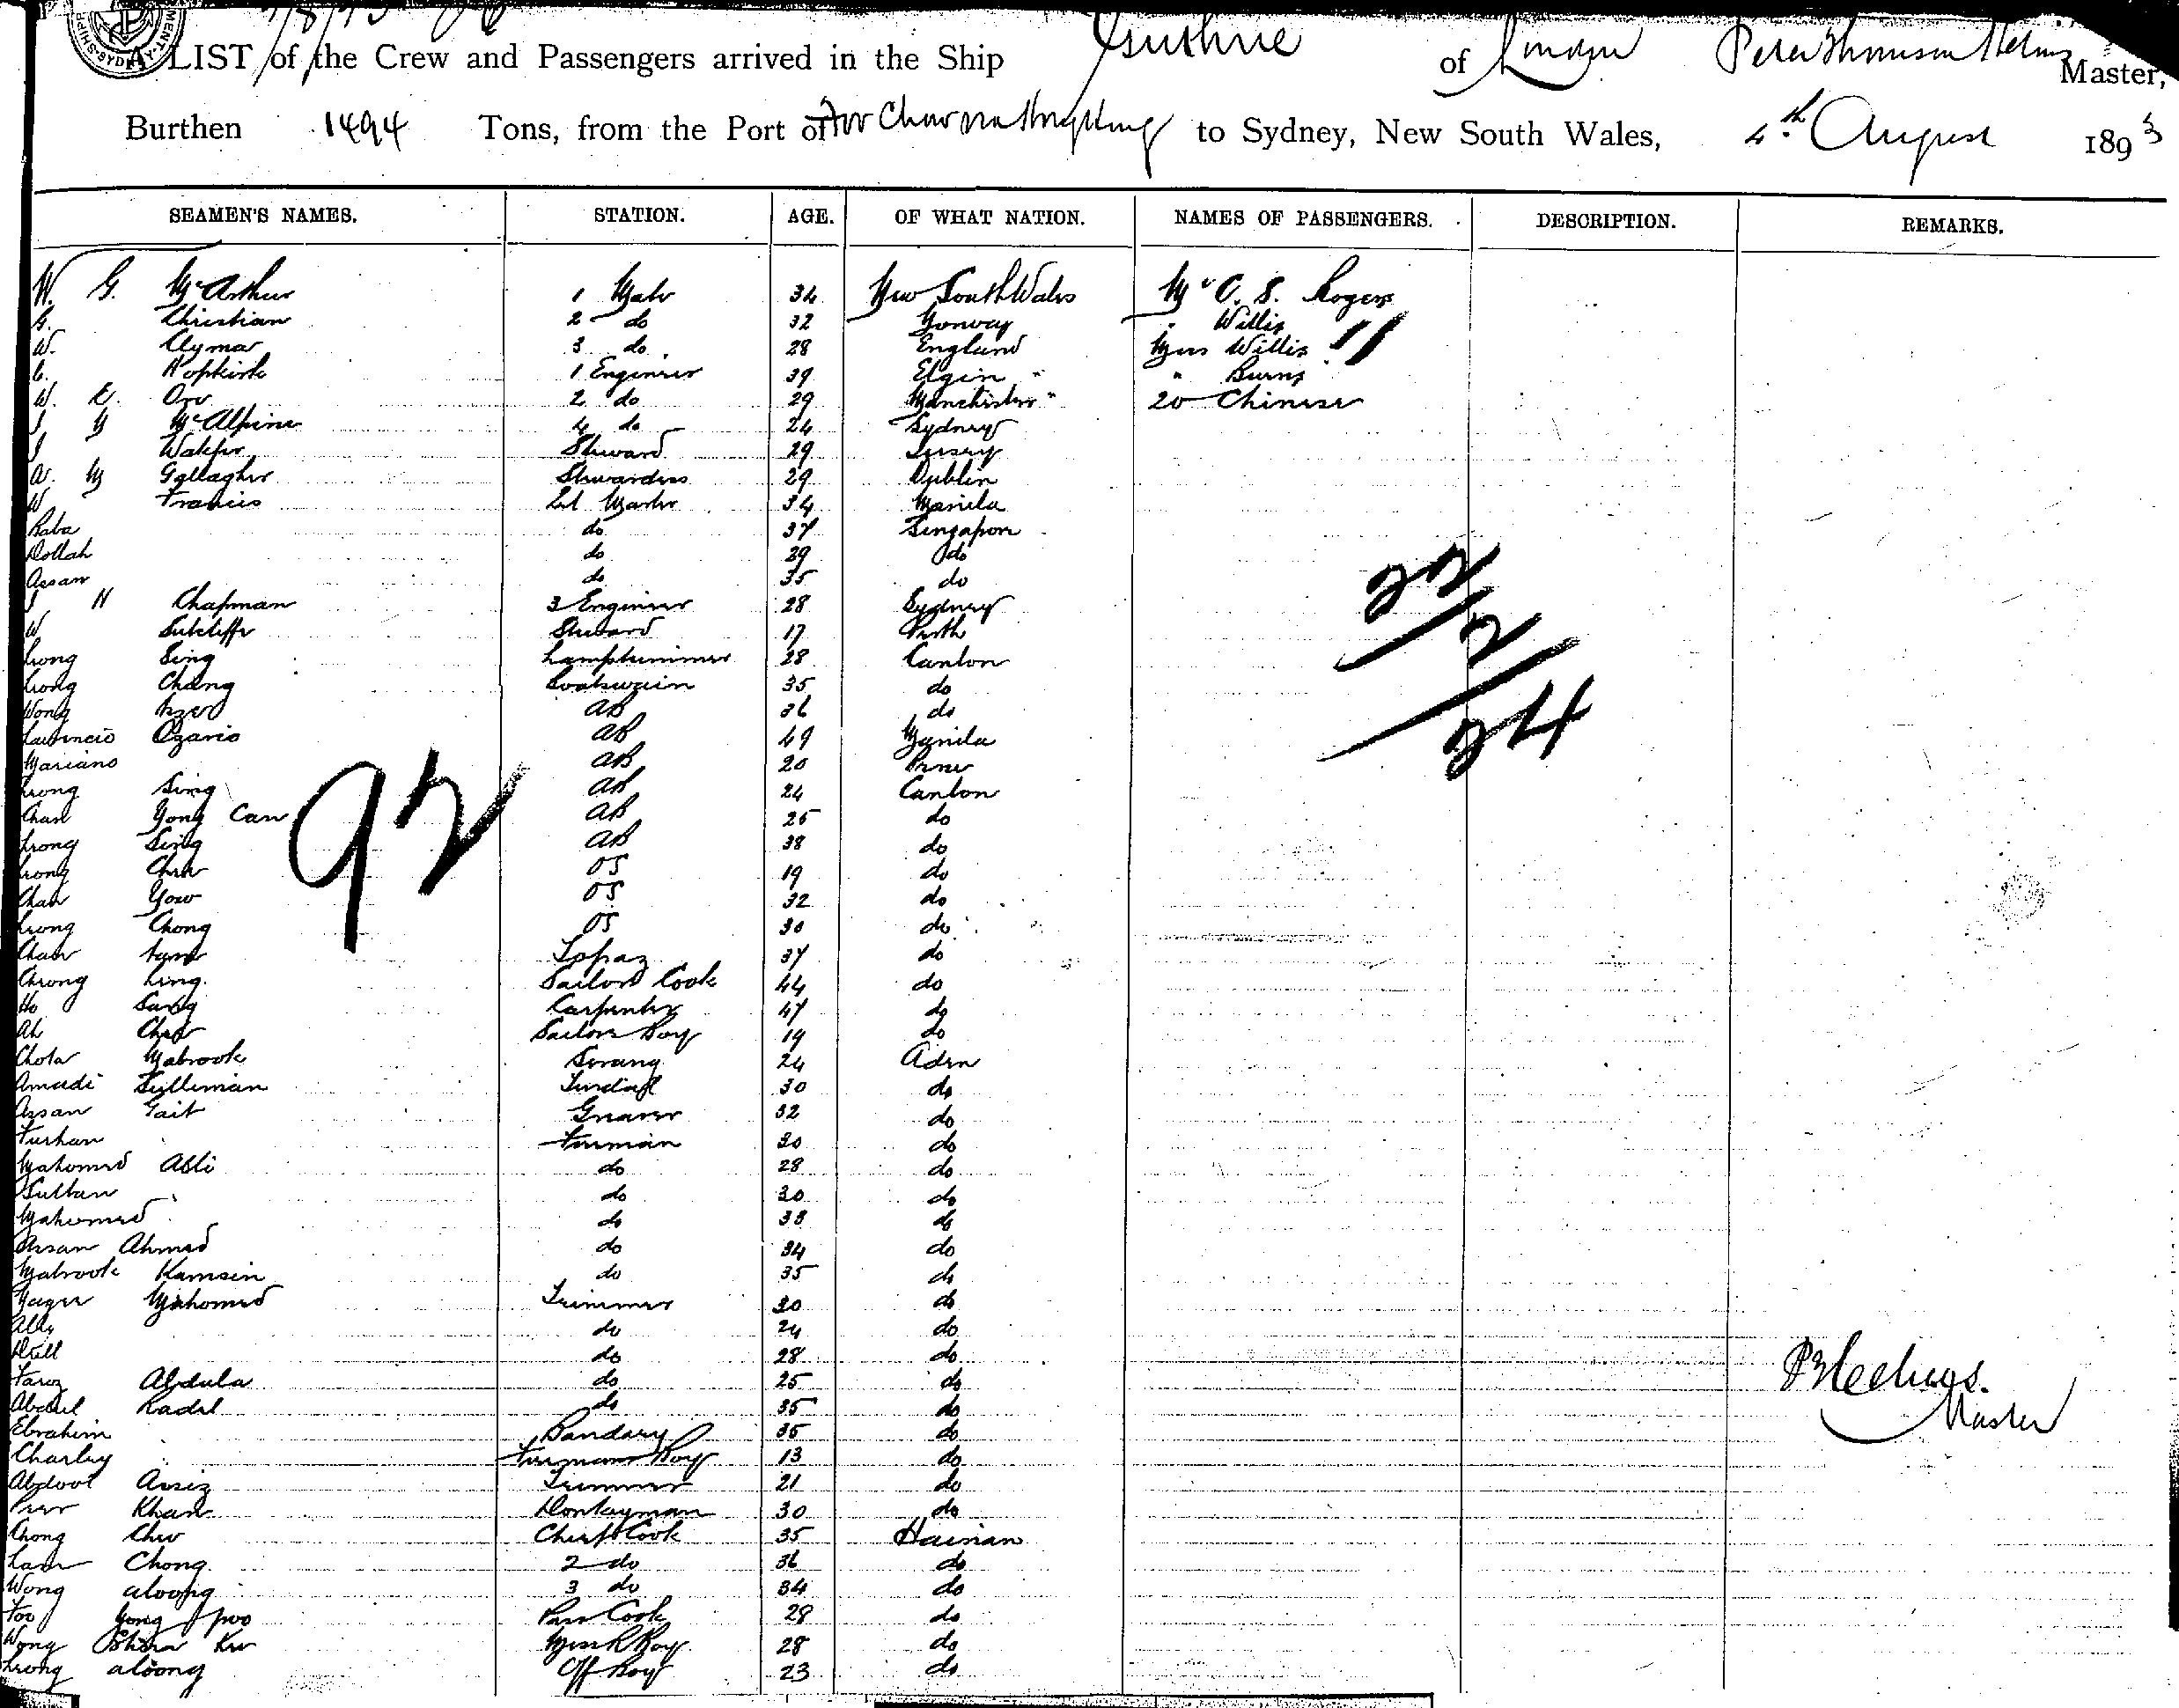 A LIST of the Crew and Passengers arrived in the Ship Guthrie of London Peter Thomson Helms Master,
Burthen 1494 Tons, from the Port of to Sydney, New South Wales, 4th August 1893
SEAMEN'S NAMES. STATION. AGE. OF WHAT NATION. NAMES OF PASSENGERS. DESCRIPTION. REMARKS.
W. G. McArthur 1 Mate 34 New South Wales Mr C. S. Rogers
G. Christian 2 do 32 Norway " Willis
W. Clymar 3 do 28 England Mrs Willis
C. Hopkirk 1 Engineer 39 Elgin " " Burns
W. E. Orr 2 do 29 Manchester " 20 Chinese
J M McAlpine 4 do 24 Sydney
J Walker Steward 29 Jersey
A. M Gallagher Stewardess 29 Dublin
W Francis 34 Manila
Baba do 37 Singapore
Dollah do 29 do
Assan do 35 do
22
J H Chapman 3 Engineer 28 Sydney
2
W Sutcliffe Steward 17 Perth
Leong Sing Lamptrimmer 28 Canton
Leong Chang Boatswain 35 do
24
Wong AB 36 do
Laurencio Ozario AB 49 Manila
Mariano AB 20
Leong Sing AB 24 Canton
92
Chan Yong Can AB 25 do
Leong Sing AB 38 do
Leong Chee OS 19 do
Chan Yow OS 32 do
Leong Chong OS 30 do
Chan Topaz 37 do
Cheong Ling Sailors Cook 44 do
Ho Sang Carpenter 47 do
Ah Sailors Boy 19 do
Chota Mabrook Serang 24 Aden
Amadi Sulleman Tindal 30 do
Assan Gait Greaser 32 do
Furhan Fireman 30 do
Mahomed Alli do 28 do
Sultan do 30 do
Mahomed do 38 do
Assan Ahmed do 34 do
Mabrook Kamsin do 35 do
Mahomed Trimmer 30 do
Ally do 24 do
do 28 do
Faroz Abdula do 25 do
P T Helms.
Abdul Kadel do 35 do
Master
Ebrahim Bandary 36 do
Charley Firemans Boy 13 do
Abdool Assiz Trimmer 21 do
Peer Khan Donkeyman 30 do
Chong Chew Chief Cook 35 Hainan
Lam Chong 2 do 36 do
Wong aloong 3 do 34 do
Foo Yong poo Pass Cook 28 do
Wong Mess R Boy 28 do
Leong aloong Off Boy 23 do